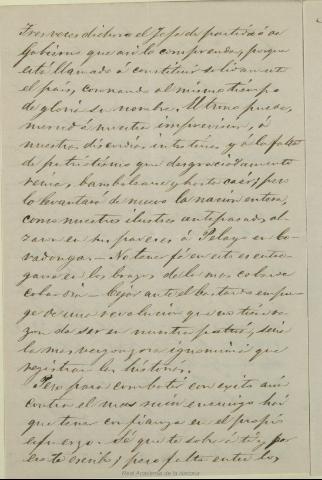 Tres veces dichoso el Jefe de partido ó de
Gobierno que así lo comprenda, porque
está llamado á constituir sólidamente
el pais, coronando al mismo tiempo
de gloria su nombre. El trono puede,
merced á nuestra imprevision, á
nuestras discordias intestinas y á la falta
de patriotismo que desgraciadamente
reina, bambolearse y hasta caer; pero
lo levantará de nuevo la nacion entera,
como nuestros ilustres antepasados al-
zaron en sus paveses á Pelayo en Co-
vadonga. No tener fé en esto es entre-
garse en los brazos de la mas
cobardia. Cejar ante el bastardo empu-
ge de una revolucion que no tiene ra-
zon de ser en nuestra patria, seria
la mas vergonzosa ignominia que
registran las historias.
Pero para combatir con exito aun
contra el mas ruin enemigo hai
que tener confianza en el propio
esfuerzo. Sé que te sobra á ti y por
eso te escribo; pero falta entre los
Real Academia de la Historia